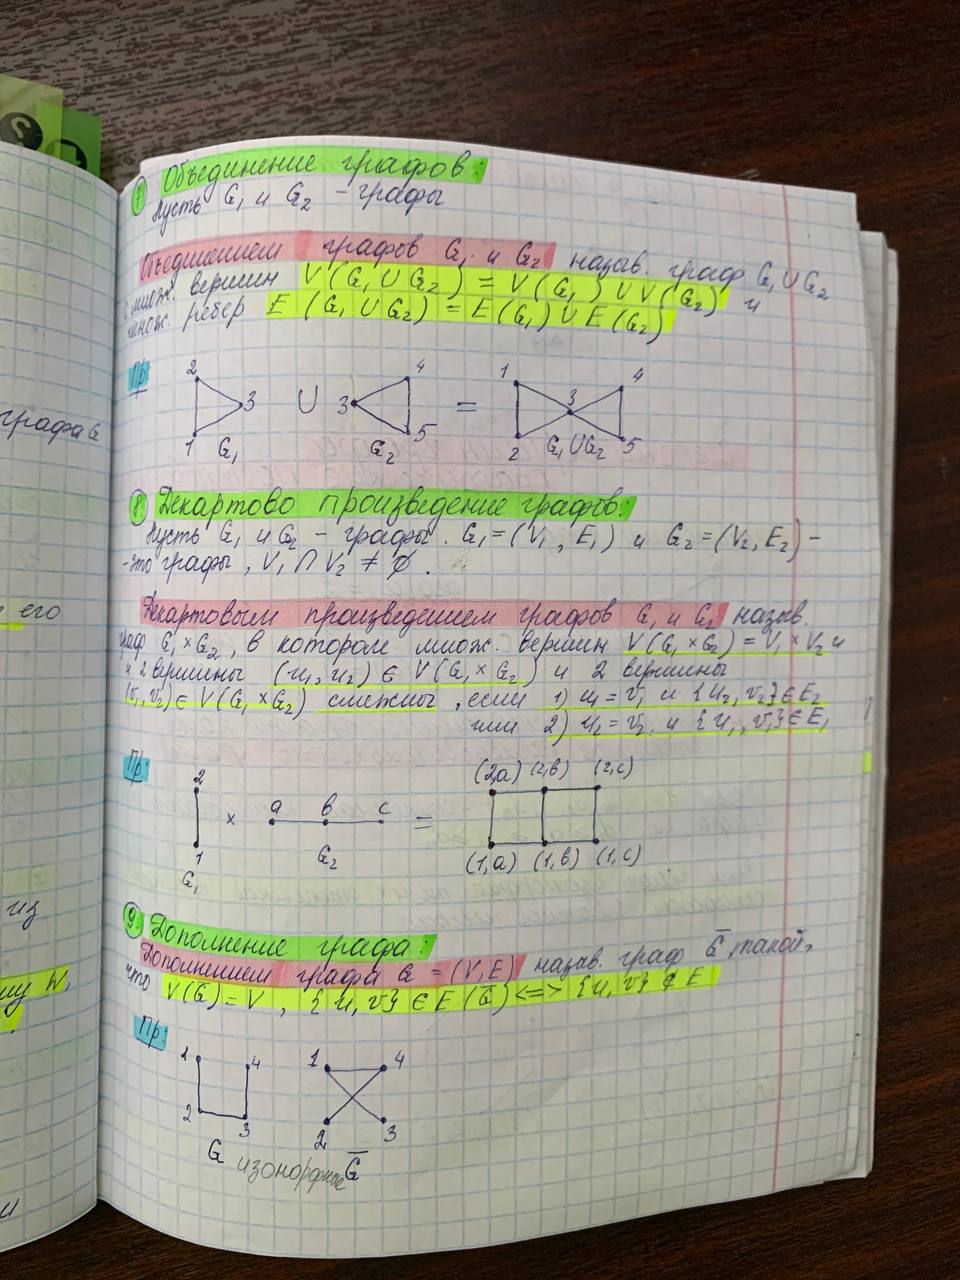 7) Объединение графов:
Пусть G₁ и G₂ - графы
Объединением графов G₁ и G₂ назыв. граф G₁ ∪ G₂
с множ. вершин V(G₁ ∪ G₂) = V(G₁) ∪ V(G₂) и
множ. рёбер E (G₁ ∪ G₂) = E(G₁) ∪ E(G₂)
Пр:
2 3 1 G₁ ∪ 3 4 5 G₂ = 1 2 3 4 5 G₁ ∪ G₂
8. Декартово произведение графов:
Пусть G₁ и G₂ - графы. G₁ = (V₁, E₁) и G₂ = (V₂, E₂) -
- это графы, V₁ ∩ V₂ ≠ ∅.
Декартовым произведением графов G₁ и G₂ назыв.
граф G₁ × G₂, в котором множ. вершин V(G₁ × G₂) = V₁ × V₂ и
и 2 вершины (u₁, u₂) ∈ V(G₁ × G₂) и 2 вершины
(v₁, v₂) ∈ V(G₁ × G₂) смежны, если 1) u₁ = v₁ и {u₂, v₂} ∈ E₂
или 2) u₂ = v₂ и {u₁, v₁} ∈ E₁
Пр:
2 1 G₁ × a b c G₂ = (2,a) (2,b) (2,c)
(1,a) (1,b) (1,c)
9. Дополнение графа:
Дополнением графа G = (V, E) назыв. граф G̅, такой,
что V(G) = V, {u, v} ∈ E(G̅) <=> {u, v} ∉ E
Пр:
1 4 2 3 G
1 4 2 3 G̅
изоморфные
графа G
его
из
W,
и